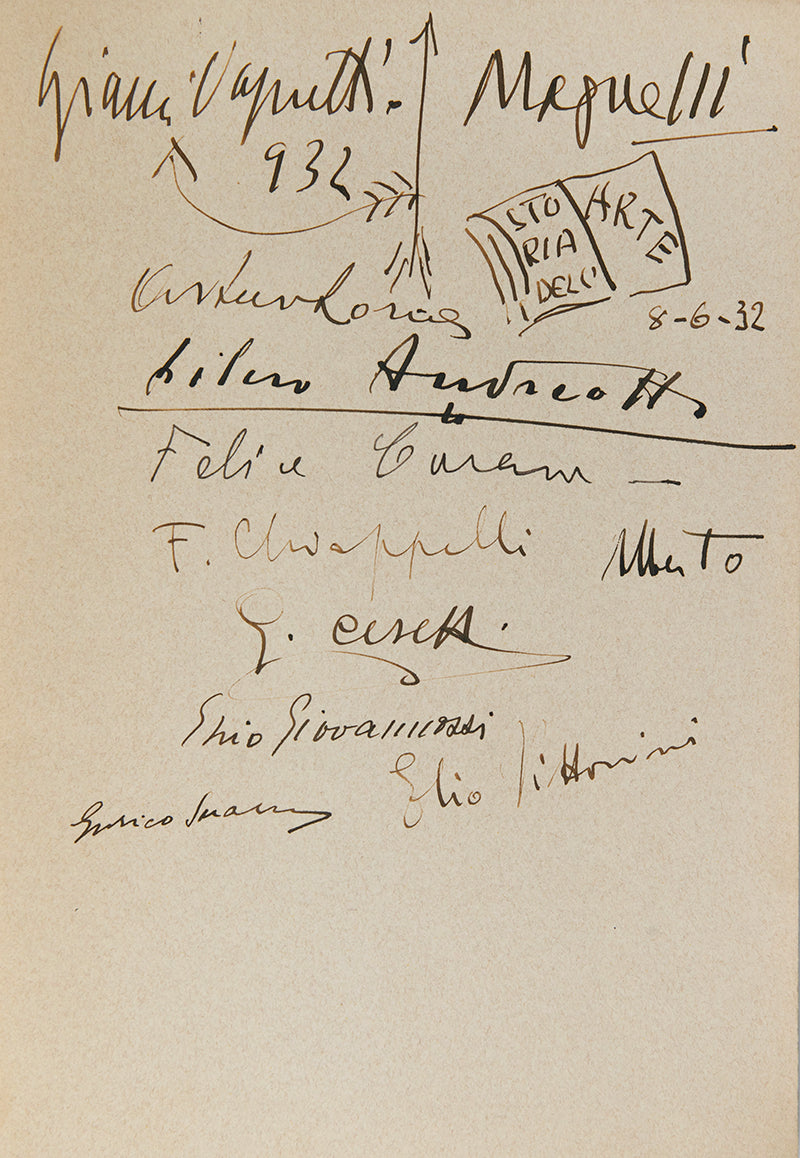 Gianni Vagnetti. Magnelli
932
STO
RIA
DELL'
ARTE
8-6-32
Arturo Loria
Libero Andreotti
Felice Carena
F. Chiappelli Alberto
G. Cesetti.
Ezio Giovannozzi
Elio Vittorini
Enrico